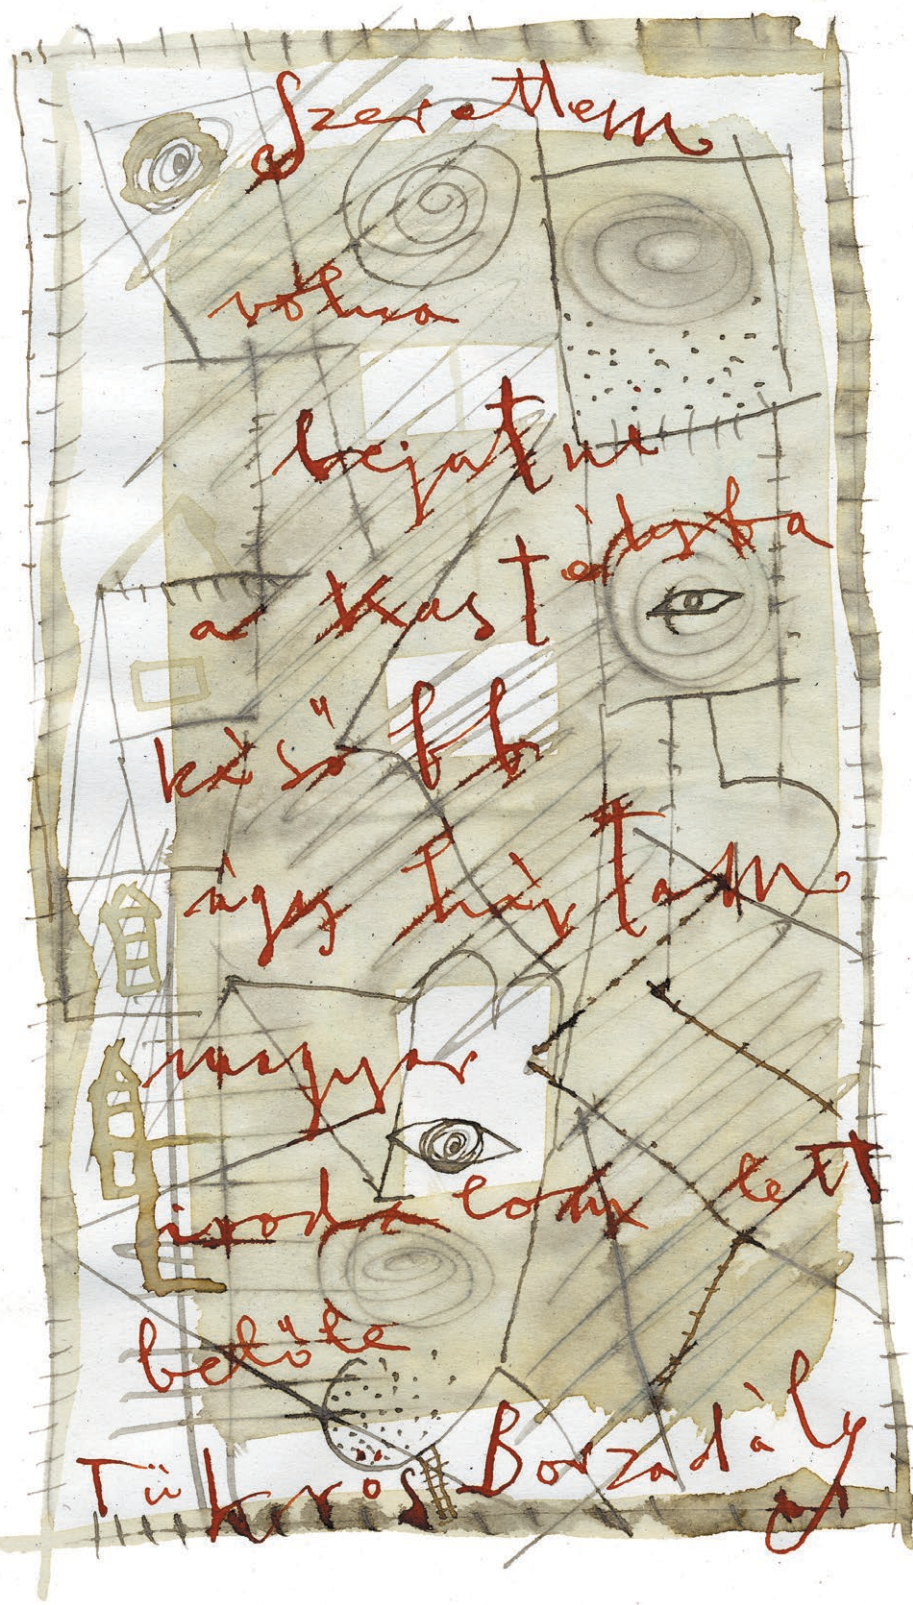 Szerettem
volna
bejutni
a kastélyba
később
úgy hívtam
magyar
irodalom lett
belőle
Tükrös Borzadály